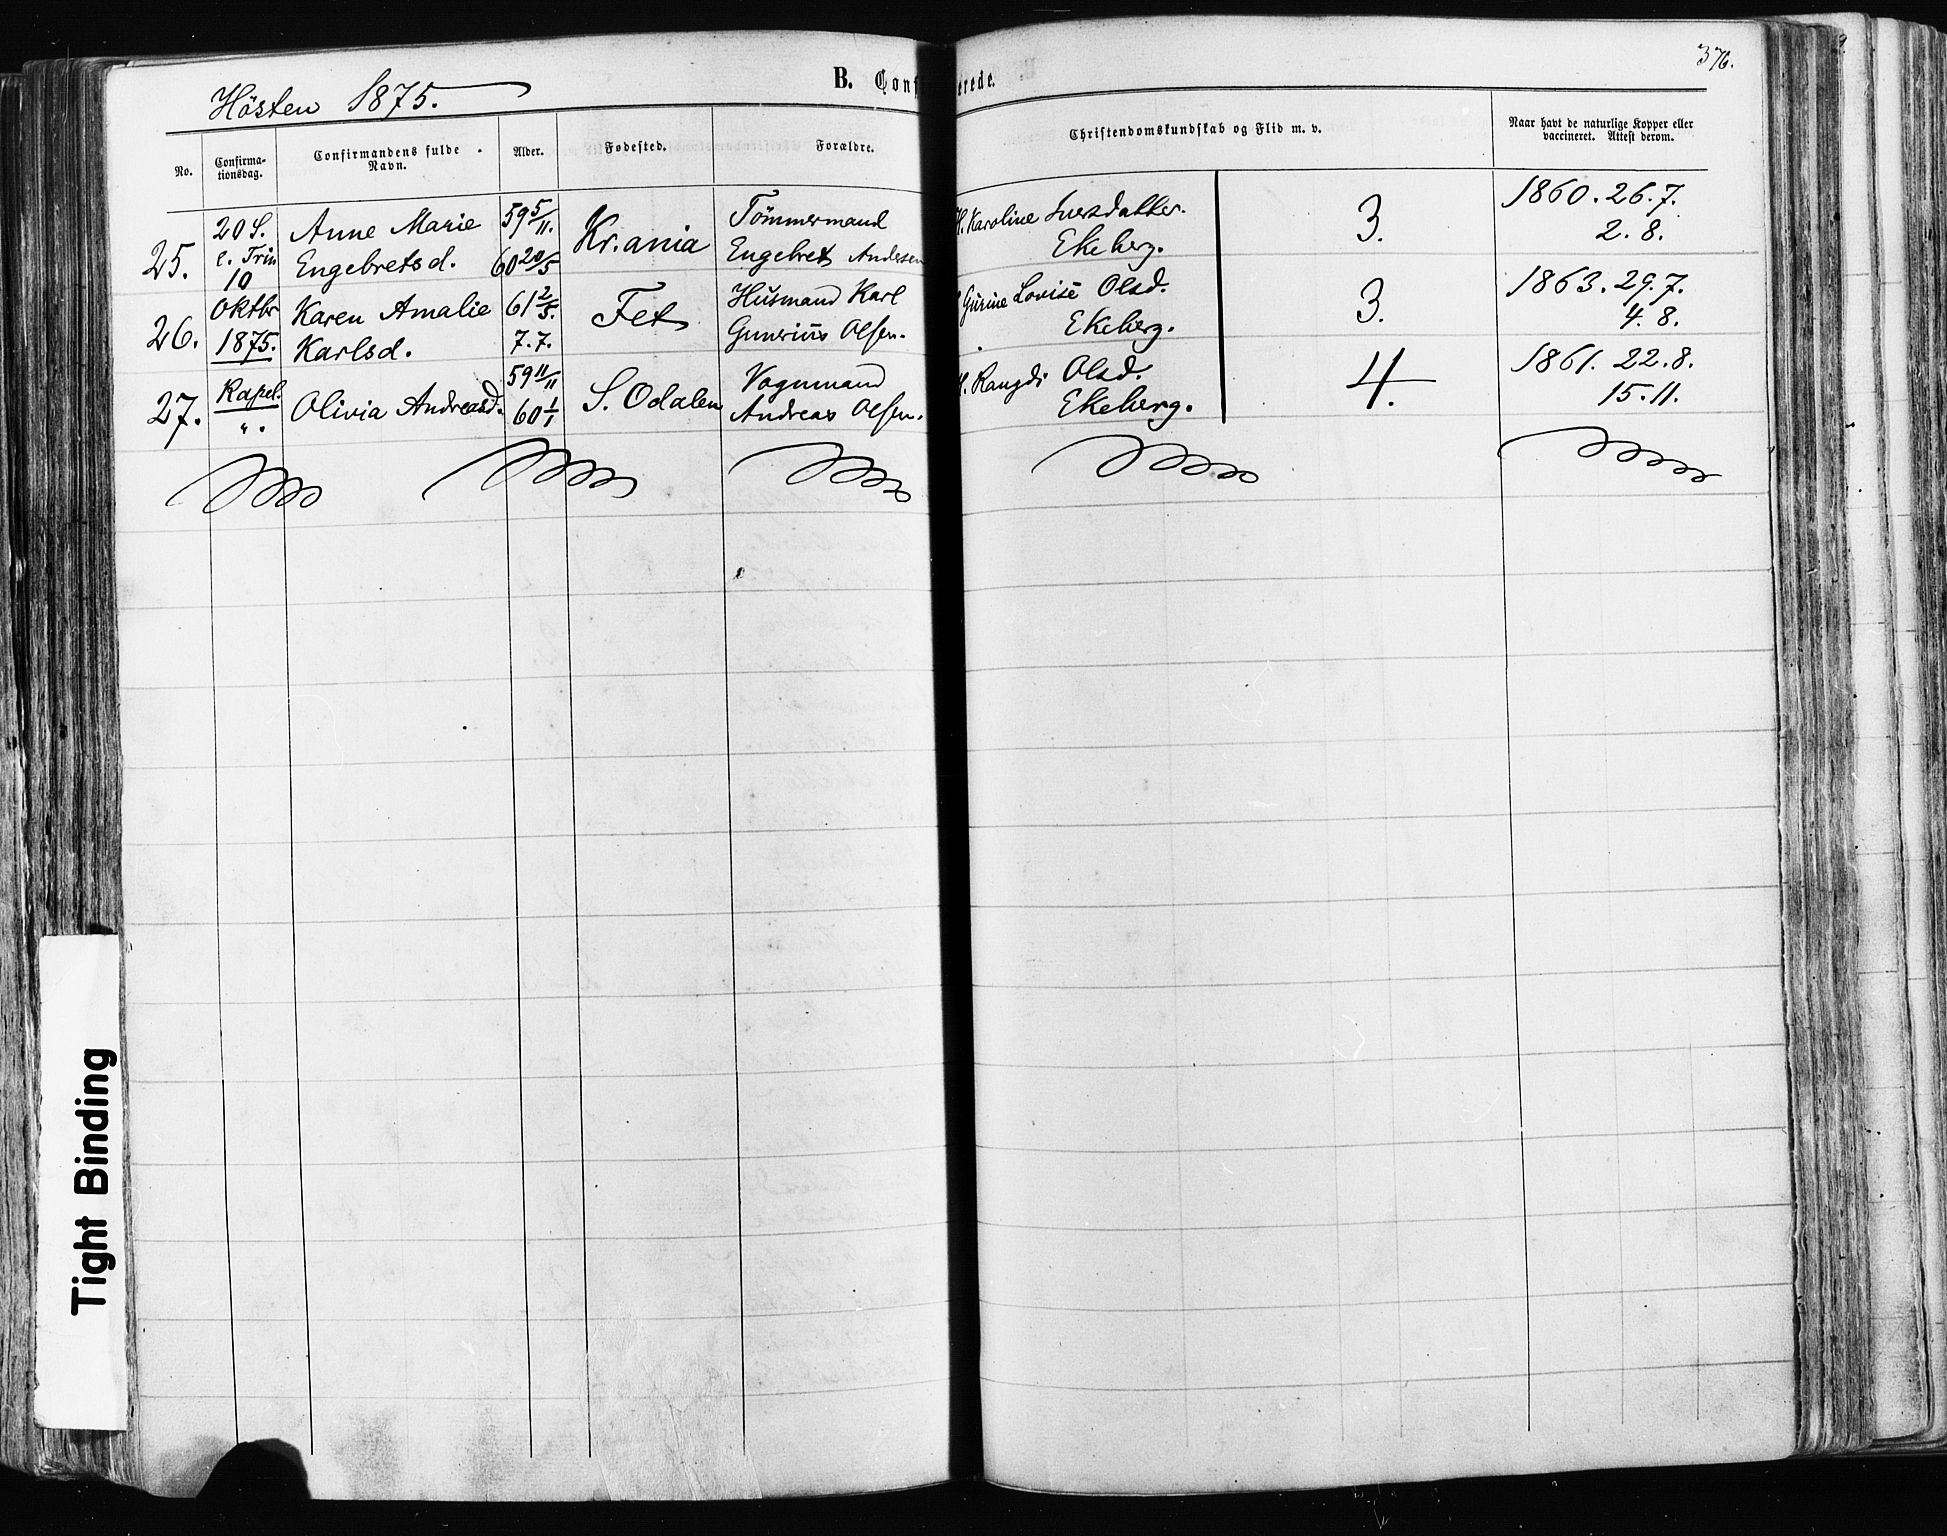 376.
Hösten 1875.
B. Conf erede.
No.
Confirma-
tionsdag.
Confirmandens fulde
Navn.
Alder.
Fødested.
Forældre.
Christendomskundskab og Flid m. v.
Naar havt de naturlige Kopper eller
vaccineret. Attest derom.
25.
20 S.
e. Trin
10
Anne Marie
Engebretsd.
59 5/11.
60 20/5
Kr.ania
Tömmermand
Engebret Andersen
H. Karoline
Ekeberg.
3.
1860. 26.7.
2. 8.
26.
Oktbr
1875.
Karen Amalie
Karlsd.
61 2/5.
7.7.
Fet
Husmand Karl
Gunerius Olsen.
Gurine Lovise Olsd.
Ekeberg.
3.
1863. 29.7.
4. 8.
27.
Kapel.
„ .
Olivia Andreasd.
59 11/11
60 1/1
S. Odalen
Vognmand
Andreas Olsen.
H. Rangdi Olsd.
Ekeberg.
4.
1861. 22.8.
15.11.
Tight Binding